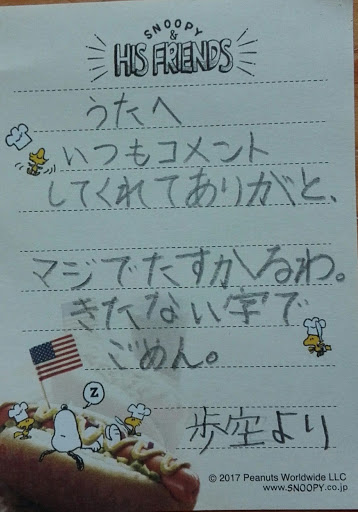 SNOOPY
&
HIS FRIENDS
うたへ
いつもコメント
してくれてありがと、
マジでたすかるわ。
きたない字で
ごめん。
Z
歩空より
© 2017 Peanuts Worldwide LLC
www.SNOOPY.co.jp